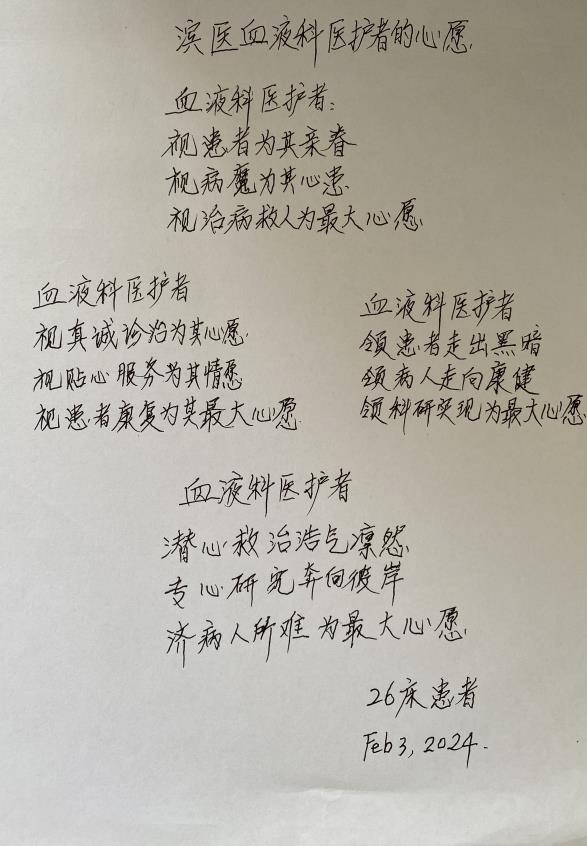 滨医血液科医护者的心愿.
血液科医护者:
视患者为其亲眷
视病魔为其心患.
视治病救人为最大心愿.
血液科医护者
视真诚诊治为其心愿.
视贴心服务为其情愿
视患者康复为其最大心愿.
血液科医护者
领患者走出黑暗
领病人走向康健
领科研实现为最大心愿.
血液科医护者
潜心救治浩气凛然.
专心研究奔向彼岸
济病人所难为最大心愿.
26床患者
Feb 3, 2024.